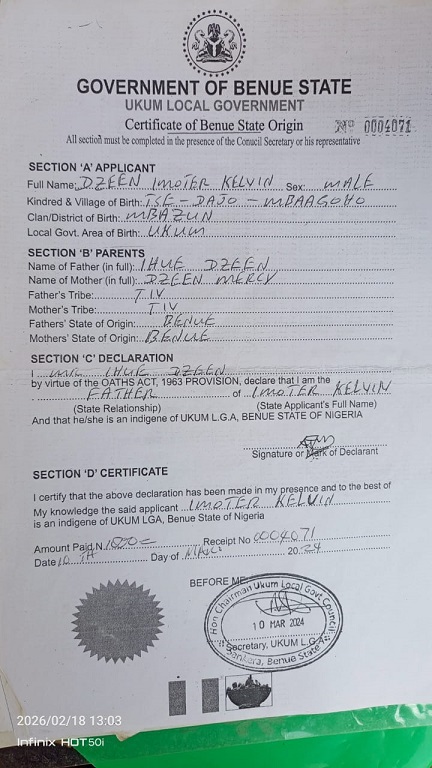 GOVERNMENT OF BENUE STATE
UKUM LOCAL GOVERNMENT
Certificate of Benue State Origin Nº 0004071
All section must be completed in the presence of the Conucil Secretary or his representative
SECTION 'A' APPLICANT
Full Name: DZEEN IMOTER KELVIN Sex: MALE
Kindred & Village of Birth: TSE - DAJO - MBAAGOHO
Clan/District of Birth: MBAZUN
Local Govt. Area of Birth: UKUM
SECTION 'B' PARENTS
Name of Father (in full): IHUE DZEEN
Name of Mother (in full): DZEEN MERCY
Father's Tribe: TIV
Mother's Tribe: TIV
Fathers' State of Origin: BENUE
Mothers' State of Origin: BENUE
SECTION 'C' DECLARATION
I MR IHUE DZEEN
by virtue of the OATHS ACT, 1963 PROVISION, declare that I am the
FATHER of IMOTER KELVIN
(State Relationship) (State Applicant's Full Name)
And that he/she is an indigene of UKUM L.G.A, BENUE STATE OF NIGERIA
Signature or Mark of Declarant
SECTION 'D' CERTIFICATE
I certify that the above declaration has been made in my presence and to the best of
My knowledge the said applicant IMOTER KELVIN
is an indigene of UKUM LGA, Benue State of Nigeria
Amount Paid N Receipt No 0004071
Date 10TH Day of 2024
BEFORE ME
Hon Chairman Ukum Local Govt Council
10 MAR 2024
Secretary, UKUM L.G.A
Sankara, Benue State
2026/02/18 13:03
Infinix HOT50i